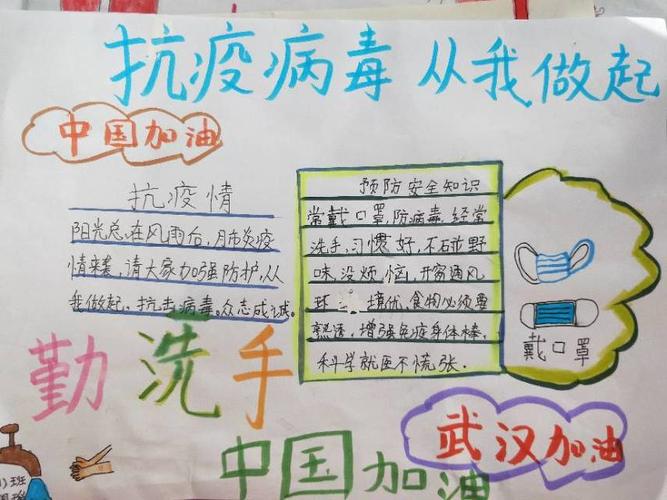 抗疫病毒 从我做起
中国加油
抗疫情
阳光总在风雨后，月市炎疫
情来袭，请大家加强防护，从
我做起，抗击病毒。众志成诚。
预防安全知识
常戴口罩，防病毒，经常
洗手，习惯好，不碰野
味没烦恼，开窗通风
环 境优，食物必须要
熟透，增强免疫身体棒，
科学就医不慌张.
戴口罩
勤洗手
武汉加油
中国加油
班